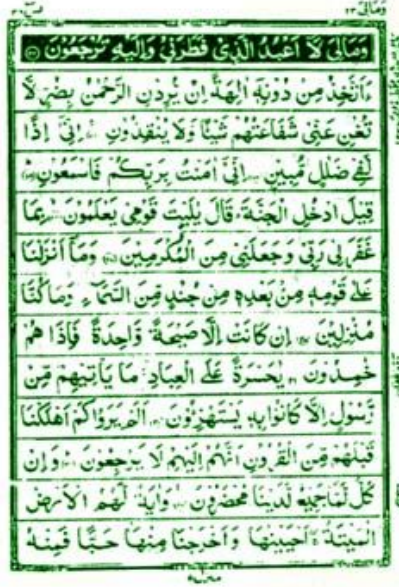 ومالی ٢٣
وَمَالِیَ لَاۤ اَعْبُدُ الَّذِیْ فَطَرَنِیْ وَاِلَیْهِ تُرْجَعُوْنَ
ءَاَتَّخِذُ مِنْ دُوْنِهٖۤ اٰلِهَةً اِنْ یُّرِدْنِ الرَّحْمٰنُ بِضُرٍّ لَّا
تُغْنِ عَنِّیْ شَفَاعَتُهُمْ شَیْـًٔا وَّلَا یُنْقِذُوْنِ اِنِّیْۤ اِذًا
لَّفِیْ ضَلٰلٍ مُّبِیْنٍ اِنِّیْۤ اٰمَنْتُ بِرَبِّكُمْ فَاسْمَعُوْنِ
قِیْلَ ادْخُلِ الْجَنَّةَ قَالَ یٰلَیْتَ قَوْمِیْ یَعْلَمُوْنَ بِمَا
غَفَرَ لِیْ رَبِّیْ وَجَعَلَنِیْ مِنَ الْمُكْرَمِیْنَ وَمَاۤ اَنْزَلْنَا
عَلٰی قَوْمِهٖ مِنْۢ بَعْدِهٖ مِنْ جُنْدٍ مِّنَ السَّمَآءِ وَمَا كُنَّا
مُنْزِلِیْنَ اِنْ كَانَتْ اِلَّا صَیْحَةً وَّاحِدَةً فَاِذَا هُمْ
خٰمِدُوْنَ یٰحَسْرَةً عَلَی الْعِبَادِ مَا یَاْتِیْهِمْ مِّنْ
رَّسُوْلٍ اِلَّا كَانُوْا بِهٖ یَسْتَهْزِءُوْنَ اَلَمْ یَرَوْا كَمْ اَهْلَكْنَا
قَبْلَهُمْ مِّنَ الْقُرُوْنِ اَنَّهُمْ اِلَیْهِمْ لَا یَرْجِعُوْنَ وَاِنْ
كُلٌّ لَّمَّا جَمِیْعٌ لَّدَیْنَا مُحْضَرُوْنَ وَاٰیَةٌ لَّهُمُ الْاَرْضُ
الْمَیْتَةُ اَحْیَیْنٰهَا وَاَخْرَجْنَا مِنْهَا حَبًّا فَمِنْهُ